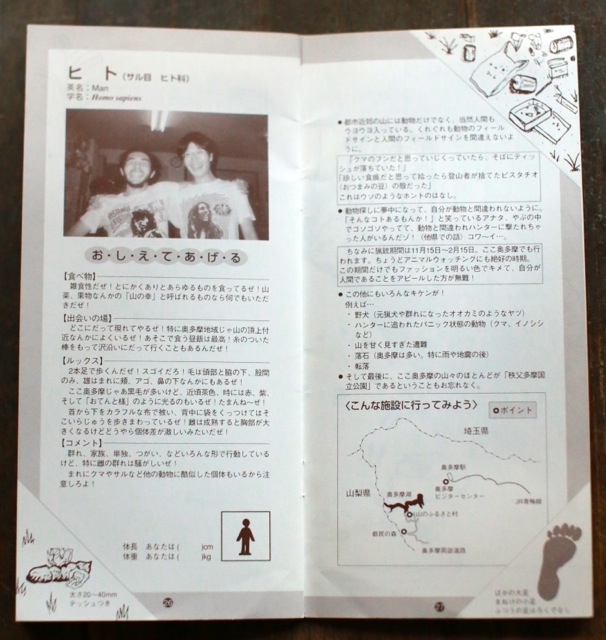 ヒト（サル目　ヒト科）
英名：Man
学名：Homo sapiens
お・し・え・て・あ・げ・る
【食べ物】
雑食性だぜ！とにかくありとあらゆるものを食ってるぜ！山
菜、果物なんかの「山の幸」と呼ばれるものなら何でもいただ
きだぜ！
【出会いの場】
どこにだって現れてやるぜ！特に奥多摩地域じゃ山の頂上付
近なんかによくいるぜ！あそこで食う昼飯は最高！糸のついた
棒をもって沢沿いにだって行くこともあるんだぜ！
【ルックス】
2本足で歩くんだぜ！スゴイだろ！毛は頭部と脇の下、股間
のみ、雄はまれに頬、アゴ、鼻の下なんかにもあるぜ！
ここ奥多摩じゃ黒毛が多いけど、近頃茶色、時には赤、紫、
そして「おてんと様」のように光るのもいるぜ！たまんねーぜ！
首から下をカラフルな布で被い、背中に袋をくっつけてはそ
こいらじゅうを歩きまわっているぜ！雌は成熟すると胸部が大
きくなるけどどうやら個体差が激しいみたいだぜ！
【コメント】
群れ、家族、単独、つがい、などいろんな形で行動している
けど、特に雌の群れは騒がしいぜ！
まれにクマやサルなど他の動物に酷似した個体もいるから注
意しろよ！
体長　あなたは（　　）cm
体重　あなたは（　　）kg
太さ20～40mm
テッシュつき
26
●都市近郊の山には動物だけでなく、当然人間も
ウヨウヨ入っている。くれぐれも動物のフィール
ドサインと人間のフィールドサインを間違えないよ
うに。
「クマのフンだと思っていじくっていたら、そばにティッ
シュが落ちていた！」
「珍しい食痕だと思って拾ったら登山者が捨てたピスタチオ
（おつまみの豆）の殻だった」
これはウソのようなホントのはなし。
●動物探しに夢中になって、自分が動物と間違われないように。
「そんなコトあるもんか！」と笑っているアナタ、やぶの中
でゴソゴソやってて、動物と間違われハンターに撃たれちゃ
った人がいるんだゾ！（他県での話）コワーイ…。
ちなみに猟銃期間は11月15日～2月15日、ここ奥多摩でも行
われます。ちょうどアニマルウォッチングにも絶好の時期、
この期間だけでもファッションを明るい色でキメて、自分が
人間であることをアピールした方が無難！
●この他にもいろんなキケンが！
例えば…
・野犬（元猟犬や群れになったオオカミのようなヤツ）
・ハンターに追われたパニック状態の動物（クマ、イノシシ
など）
・山を甘く見すぎた遭難
・落石（奥多摩は多い、特に雨や地震の後）
・転落
●そして最後に、ここ奥多摩の山々のほとんどが「秩父多摩国
立公園」であるということもお忘れなく。
〈こんな施設に行ってみよう〉
◎ポイント
埼玉県
山梨県
奥多摩駅
奥多摩
ビジターセンター
奥多摩湖
JR青梅線
山のふるさと村
都民の森
奥多摩周遊道路
ばかの大足
まぬけの小足
ふつうの足はろくでなし
27